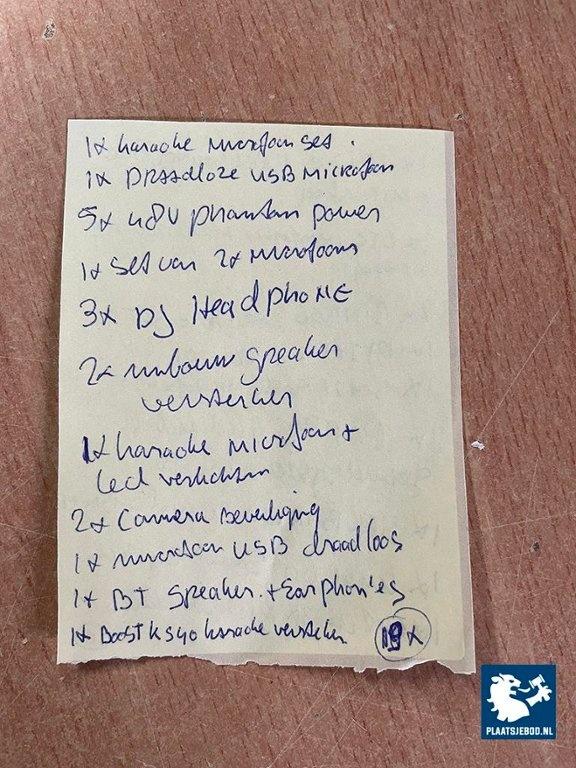 1x karaoke microfoon set.
1x DRAADLOZE USB MICROfoon
5x 48V phantom power
1x set van 2x microfoons
3x DJ HeadPHONE
2x inbouw speaker
versterker
1x karaoke microfoon +
led verlichten
2x Camera Beveiliging
1x microfoon USB draadloos
1x BT speaker. + Earphon'es
1x BOOST KS40 karaoke versterker
19x
PLAATSJEBOD.NL